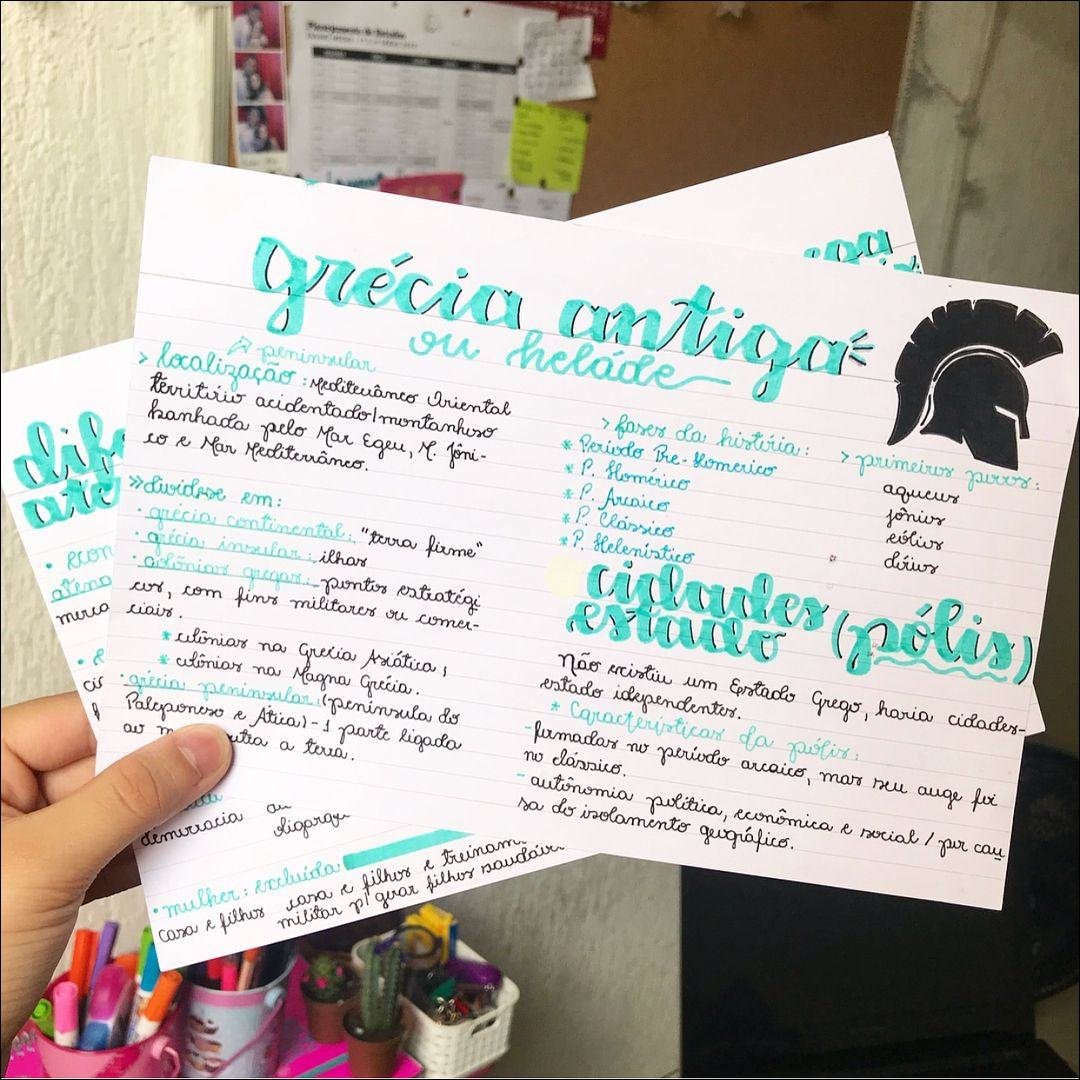 Planejamento de Estudos
grécia antiga
ou heláde
peninsular
> localização: Mediterrâneo Oriental
território acidentado/montanhoso
banhada pelo Mar Egeu, M. Jôni-
co e Mar Mediterrâneo.
>> dividisse em:
• grécia continental: "terra firme"
• grécia insular: ilhas
• colônias gregas: pontos estratégi
cos, com fins militares ou comer-
ciais.
* colônias na Grecia Asiática;
* colônias na Magna Grécia.
• grécia peninsular: (península do
Paleponeso e Ática) - 1 parte ligada
ao outra a terra.
> fases da história:
* Período Pré-Homerico
* P. Homérico
* P. Arcaico
* P. Clássico
* P. Helenístico
> primeiros povos:
aqueus
jônios
eólios
dórios
cidades (pólis)
estado
Não existiu um Estado Grego, havia cidades-
estado idependentes.
* Características da pólis:
- firmadas no período arcaico, mas seu auge foi
no clássico.
- autônomia política, econômica e social / por cau
sa do isolamento geográfico.
dif
ate
• econ
atena
democracia
oligarqu
• mulher: excluída
casa e filhos casa e filhos e treinam
militar p/ gerar filhos saudávei